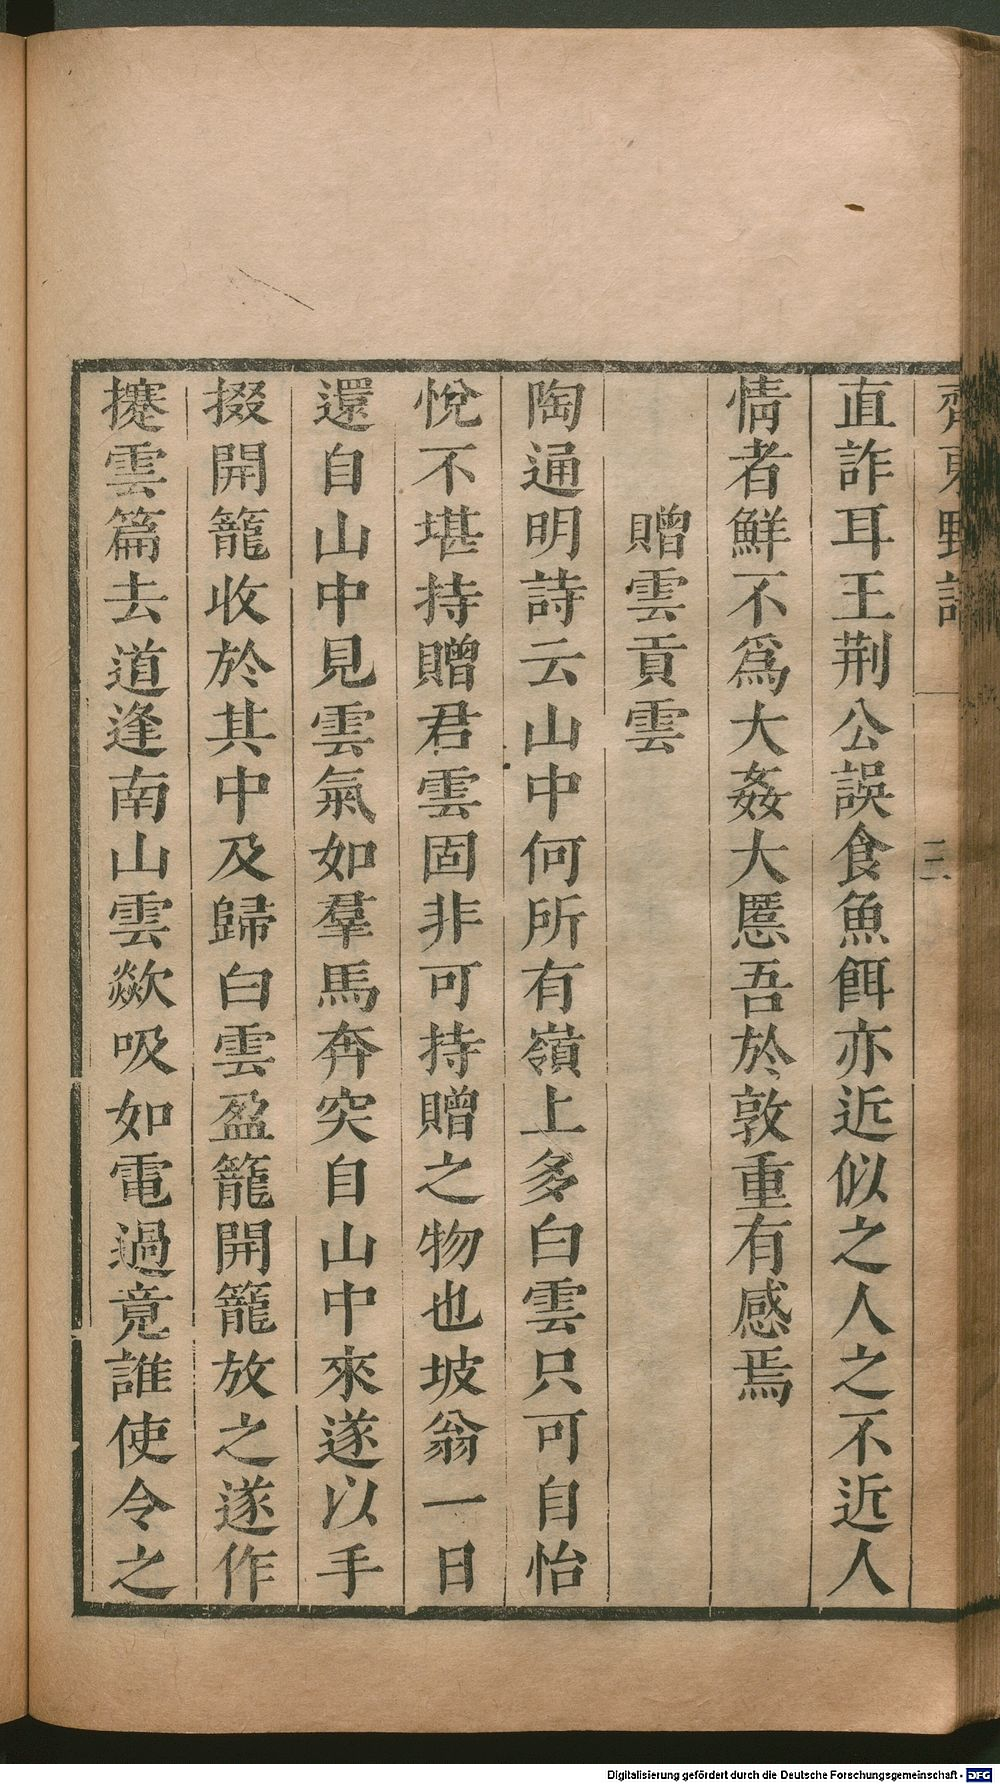 齊東野語
三
直詐耳王荆公誤食魚餌亦近似之人之不近人
情者鮮不爲大姦大慝吾於敦重有感焉
贈雲貢雲
陶通明詩云山中何所有嶺上多白雲只可自怡
悅不堪持贈君雲固非可持贈之物也坡翁一日
還自山中見雲氣如羣馬奔突自山中來遂以手
掇開籠收於其中及歸白雲盈籠開籠放之遂作
攓雲篇去道逢南山雲歘吸如電過竟誰使令之
Digitalisierung gefördert durch die Deutsche Forschungsgemeinschaft - DFG